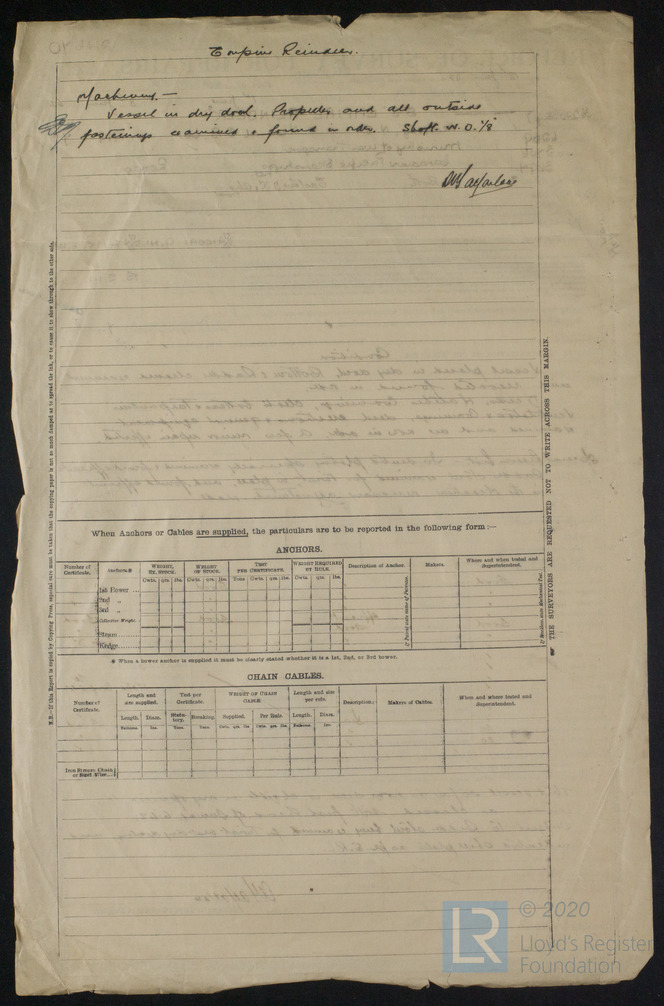 Empire Reindeer.
Machinery. —
Vessel in dry dock, Propeller and all outside
fastenings examined & found in order. Shaft. W.D. 1/8
N.B.—If this Report is copied by Copying Press, especial care must be taken that the copying paper is not so much damped as to spread the ink, or to cause it to show through to the other side.
THE SURVEYORS ARE REQUESTED NOT TO WRITE ACROSS THIS MARGIN.
When Anchors or Cables are supplied, the particulars are to be reported in the following form :—
ANCHORS.
Number of Certificate. Anchors.* WEIGHT, EX. STOCK. WEIGHT OF STOCK. TEST PER CERTIFICATE. WEIGHT REQUIRED BY RULE. Description of Anchor. Makers. Where and when tested and Superintendent.
Cwts. qrs. lbs. Cwts. qrs. lbs. Tons. Cwts. qrs. lbs. Cwts. qrs. lbs.
1st Bower ...
2nd „
3rd „
Collective Weight.
Stream
Kedge
* When a bower anchor is supplied it must be clearly stated whether it is a 1st, 2nd, or 3rd bower.
CHAIN CABLES.
Number of Certificate. Length and size supplied. Test per Certificate. WEIGHT OF CHAIN CABLE Length and size per rule. Description. Makers of Cables. Where and when tested and Superintendent.
Length. Diam. Statutory. Breaking. Supplied. Per Rule. Length. Diam.
Fathoms. Ins. Tons. Tons. Cwts. qrs. lbs. Cwts. qrs. lbs. Fathoms. Ins.
Iron Stream Chain or Steel Wire...
LR
© 2020
Lloyd's Register
Foundation